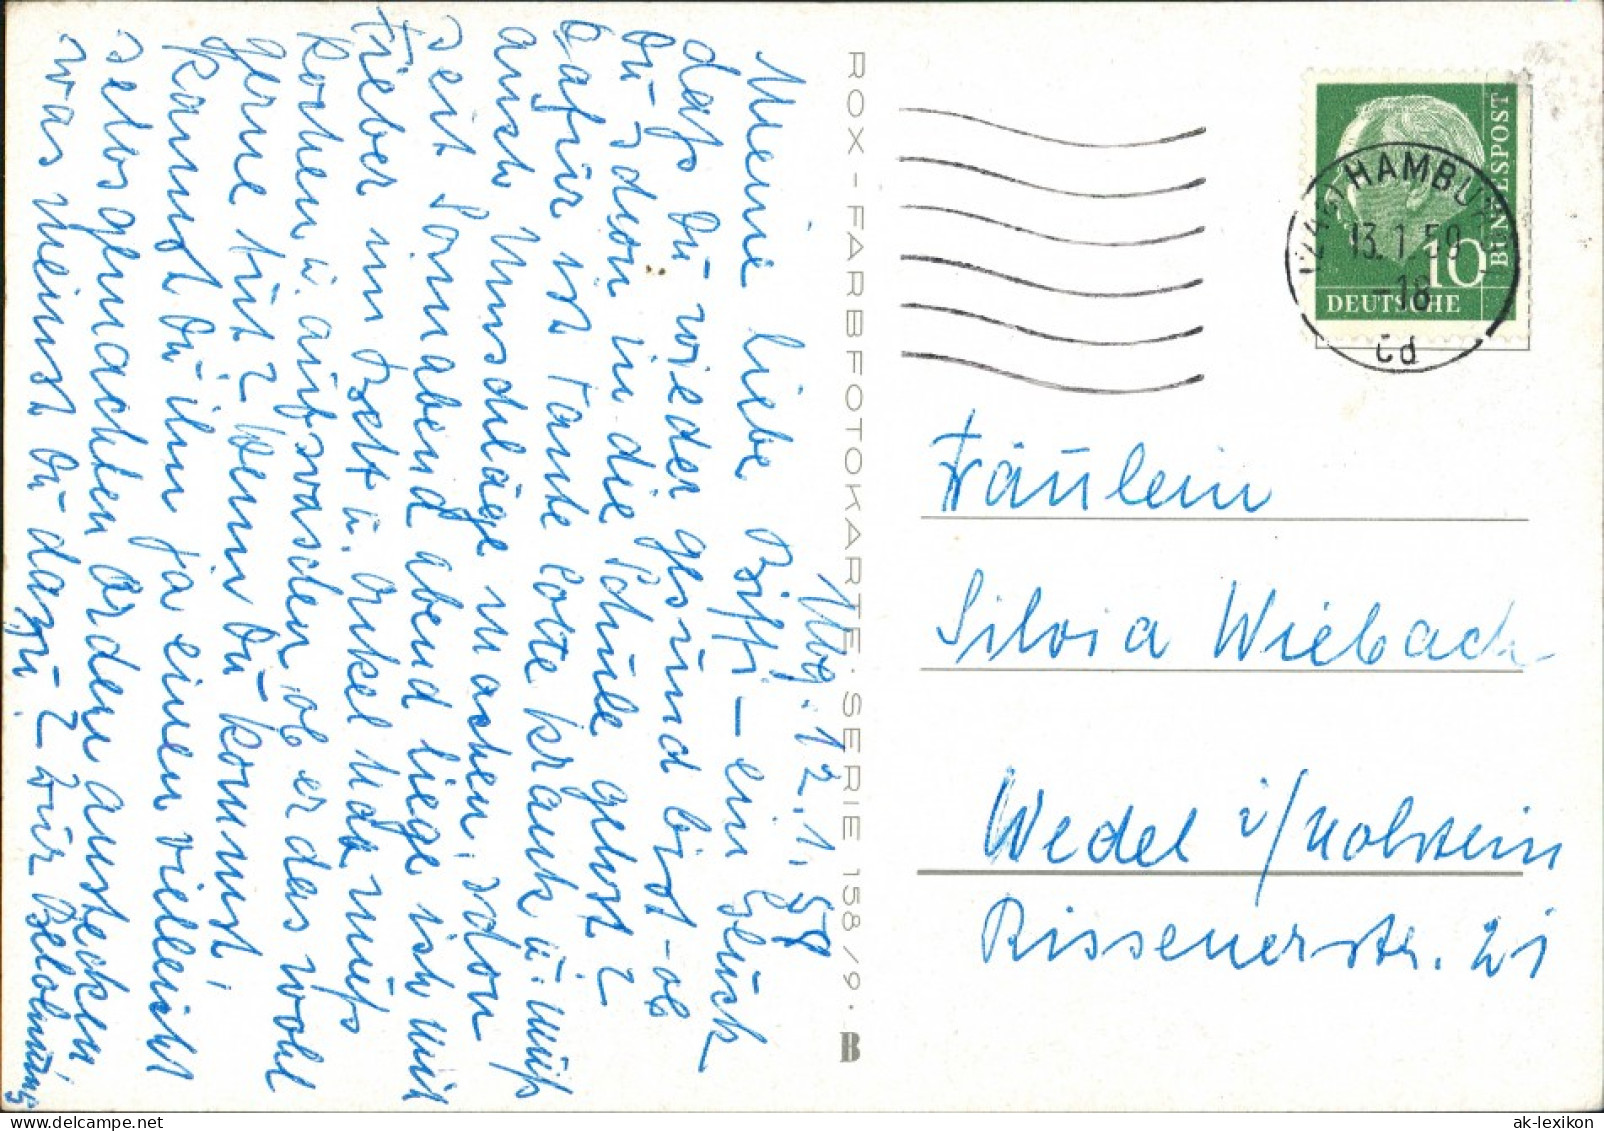 Hbg. 12.1.59
Meine liebe Biffi – ein Glück
dafs Du wieder gesund bist – ob
Du schon in die Schule gehst?
Dafür ist Tante Lotte krank u. mufs
auch Umschläge machen, schon
seit Sonnabend abend liege ich mit
Fieber im Bett u. Onkel Udo mufs
kochen u. aufwaschen, ob er das wohl
gerne tut? Wenn Du kommst,
kannst Du ihm ja einen vielleicht
selbsgemachten Orden anstecken
was meinst Du dazu? Zur Belohnung
ROX – FARBFOTOKARTE · SERIE 158/9 · B
HAMBURG
13.1.59
–18
cd
10
DEUTSCHE
BUNDESPOST
Fräulein
Silvia Wiebach
Wedel i/Holstein
Rissenerstr. 21
ak-lexikon